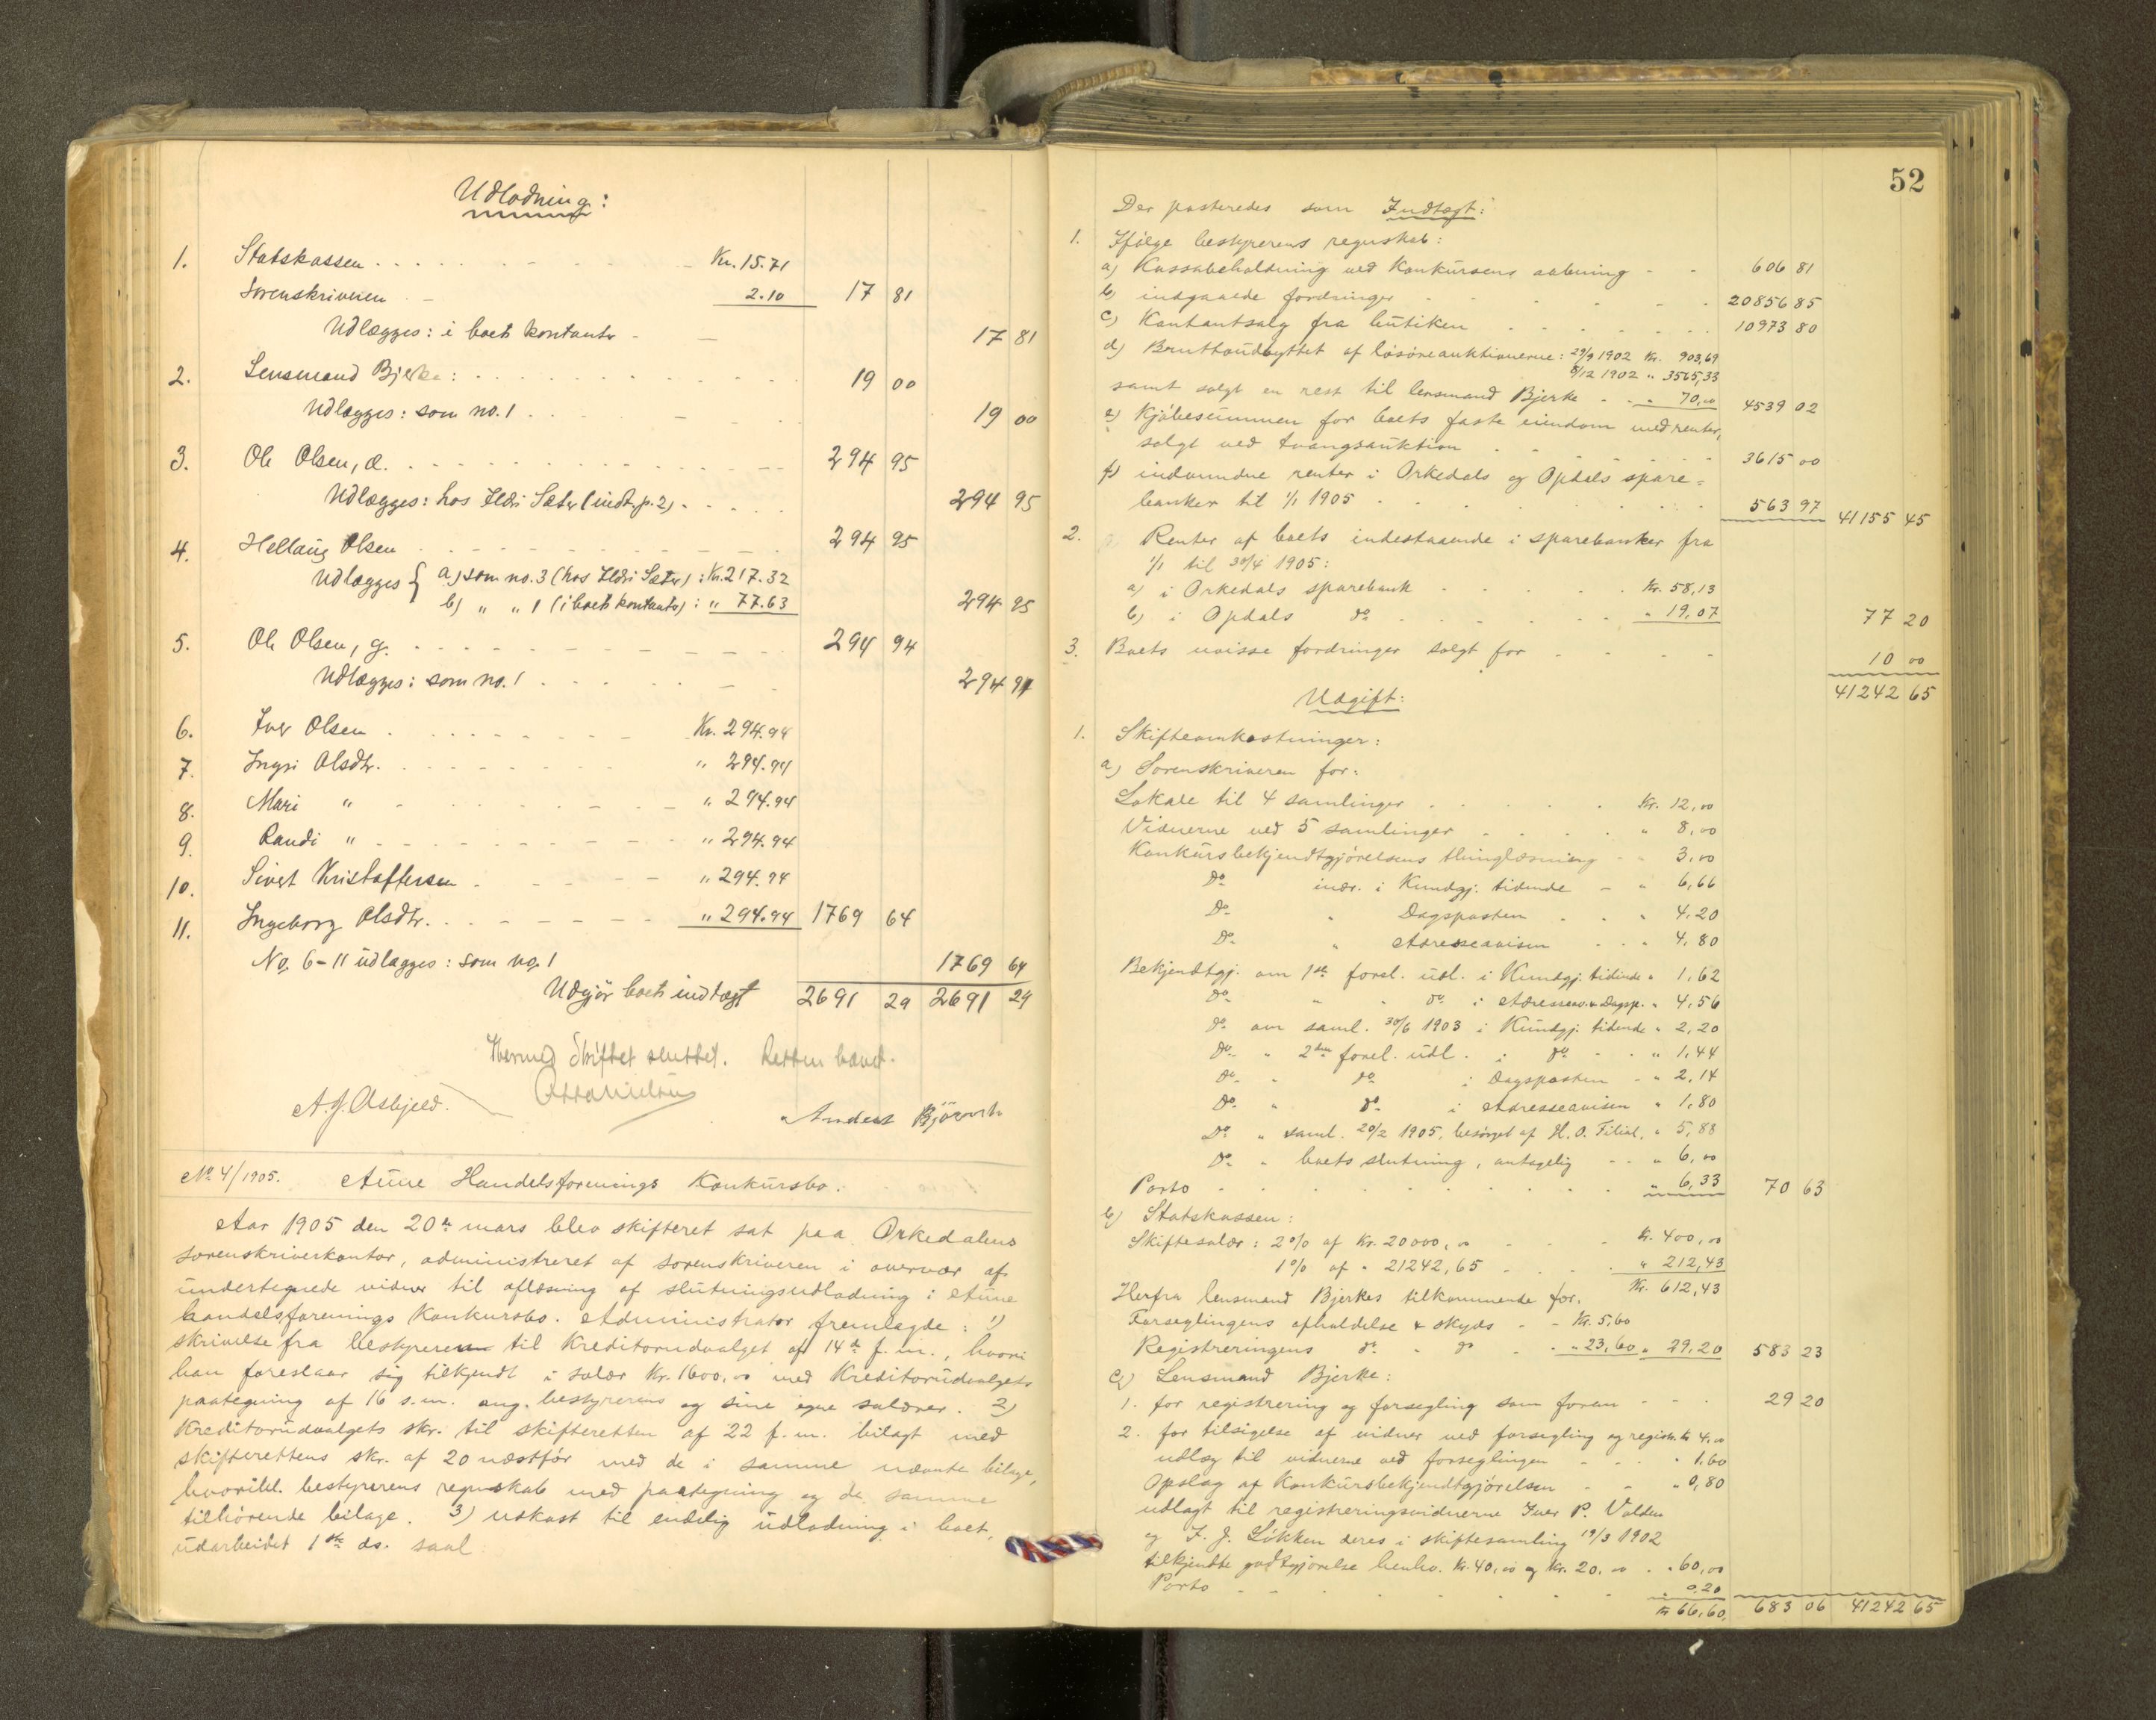 Udlodning:
1. Statskassen . . . . Kr. 15.71
Sorenskriveren . - 2.10 17 81
Udlægges: i boets kontanter - 17 81
2. Lensmand Bjerke: . . . . 19 00
Udlægges: som no. 1 . . . . 19 00
3. Ole Olsen, d. . . . . 294 95
Udlægges: hos Ildri Sæter (indt. p. 2) . . . . 294 95
4. Hellaug Olsen . . . . 294 95
Udlægges { a) som no. 3 (hos Ildri Sæter) : Kr. 217.32
b) " " 1 (i boets kontanter) : " 77.63 294 95
5. Ole Olsen, g. . . . . 294 94
Udlægges: som no. 1 . . . . 294 94
6. Iver Olsen . . . . Kr. 294.94
7. Ingri Olsdtr. . . . . " 294.94
8. Mari " . . . . " 294.94
9. Randi " . . . . " 294.94
10. Sivert Kristoffersen . . . . " 294.94
11. Ingeborg Olsdtr. . . . . " 294.94 1769 64
No. 6-11 udlægges: som no. 1 1769 64
Udgjør boets indtægt 2691 29 2691 29
Hermed Skiftet sluttet. Retten hævet.
A. J. Asbjeld.
Anders
No. 4/1905. Aune Handelsforenings Konkursbo.
Aar 1905 den 20de mars blev skifteret sat paa Orkedalens
sorenskriverkontor, administreret af sorenskriveren i overvær af
undertegnede vidner til aflæsning af slutningsudlodning i Aune
handelsforenings Konkursbo. Administrator fremlagde: 1)
skrivelse fra bestyreren til Kreditorudvalget af 14de f. m., hvori
han foreslaar sig tilkjendt i salær Kr. 1600,00 med Kreditorudvalgets
paategning af 16 s. m. ang. bestyrerens og sine egne salærer. 2)
Kreditorudvalgets skr. til skifteretten af 22 f. m. bilagt med
skifterettens skr. af 20 næstfør med de i samme nævnte bilage,
hvoribl. bestyrerens regnskab med paategning og de samme
tilhørende bilage. 3) udkast til endelig udlodning i boet,
udarbeidet 1ste ds. saal.
52
Der posteredes som Indtægt:
1. Ifølge bestyrerens regnskab:
a) Kassabeholdning ved Konkursens aabning - - 606 81
b) indgaaede fordringer . . . . 20856 85
c) Kontantsalg fra butiken . . . . 10973 80
d) Bruttoudbyttet af løsøreauktionerne: 29/9 1902 Kr. 903,69
5/12 1902 " 3565,33
samt solgt en rest til lensmand Bjerke - . " 70,00 4539 02
e) Kjøbesummen for boets faste eiendom med renter,
solgt ved tvangsauktion . . . . 3615 00
f) indvundne renter i Orkedals og Opdals spare=
banker til 1/1 1905 . . . . 563 97 41155 45
2. Renter af boets indestaaende i sparebanker fra
1/1 til 30/4 1905:
a) i Orkedals sparebank . . . . Kr. 58,13
b) i Opdals do . . . . " 19,07 77 20
3. Boets uvisse fordringer solgt for - - - - 10 00
41242 65
Udgift:
1. Skifteomkostninger:
a) Sorenskriveren for:
Lokale til 4 samlinger . . . . Kr. 12,00
Vidnerne ved 5 samlinger . . . . " 8,00
Konkursbekjendtgjørelsens thinglæsning - " 3,00
Do inær. i Kundgj. tidende - " 6,66
Do " Dagsposten . . " 4,20
Do " Adresseavisen . . " 4,80
Bekjendtgj. om 1ste forel. udl. i Kundgj. tidende " 1,62
Do " " do i Adresseav. & Dagsp. " 4,56
Do om saml. 30/6 1903 i Kundgj. tidende " 2,20
Do " 2den forel. udl. i do - " 1,44
Do " do i Dagsposten - " 2,14
Do " do i Adresseavisen " 1,80
Do " saml. 20/2 1905, besørget af H. O. Filial, " 5,88
Do " boets slutning, antagelig - - " 6,00
Porto . . . . " 6,33 70 63
b) Statskassen:
Skiftesalær: 2% af Kr. 20000,00 - - Kr. 400,00
1% af " 21242,65 . . . " 212,43
Kr. 612,43
Herfra lensmand Bjerkes tilkommende for.
Forseglingens afholdelse & skyds - - Kr. 5,60
Registreringens do " do - . " 23,60 " 29,20 583 23
c) Lensmand Bjerke:
1. for registrering og forsegling som foran - - - 29 20
2. for tilsigelse af vidner ved forsegling og registr. Kr 4,00
udlæg til vidnerne ved forseglingen - - . " 1,60
Opslag af Konkursbekjendtgjørelsen - - " 0,80
udlagt til registreringsvidnerne Iver P. Volden
og I. J. Løkken deres i skiftesamling 19/3 1902
tilkjendte godtgjørelse henho. Kr. 40,00 og Kr. 20,00 . " 60,00
Porto - - . . . . " 0,20
Kr 66,60. 683 06 41242 65